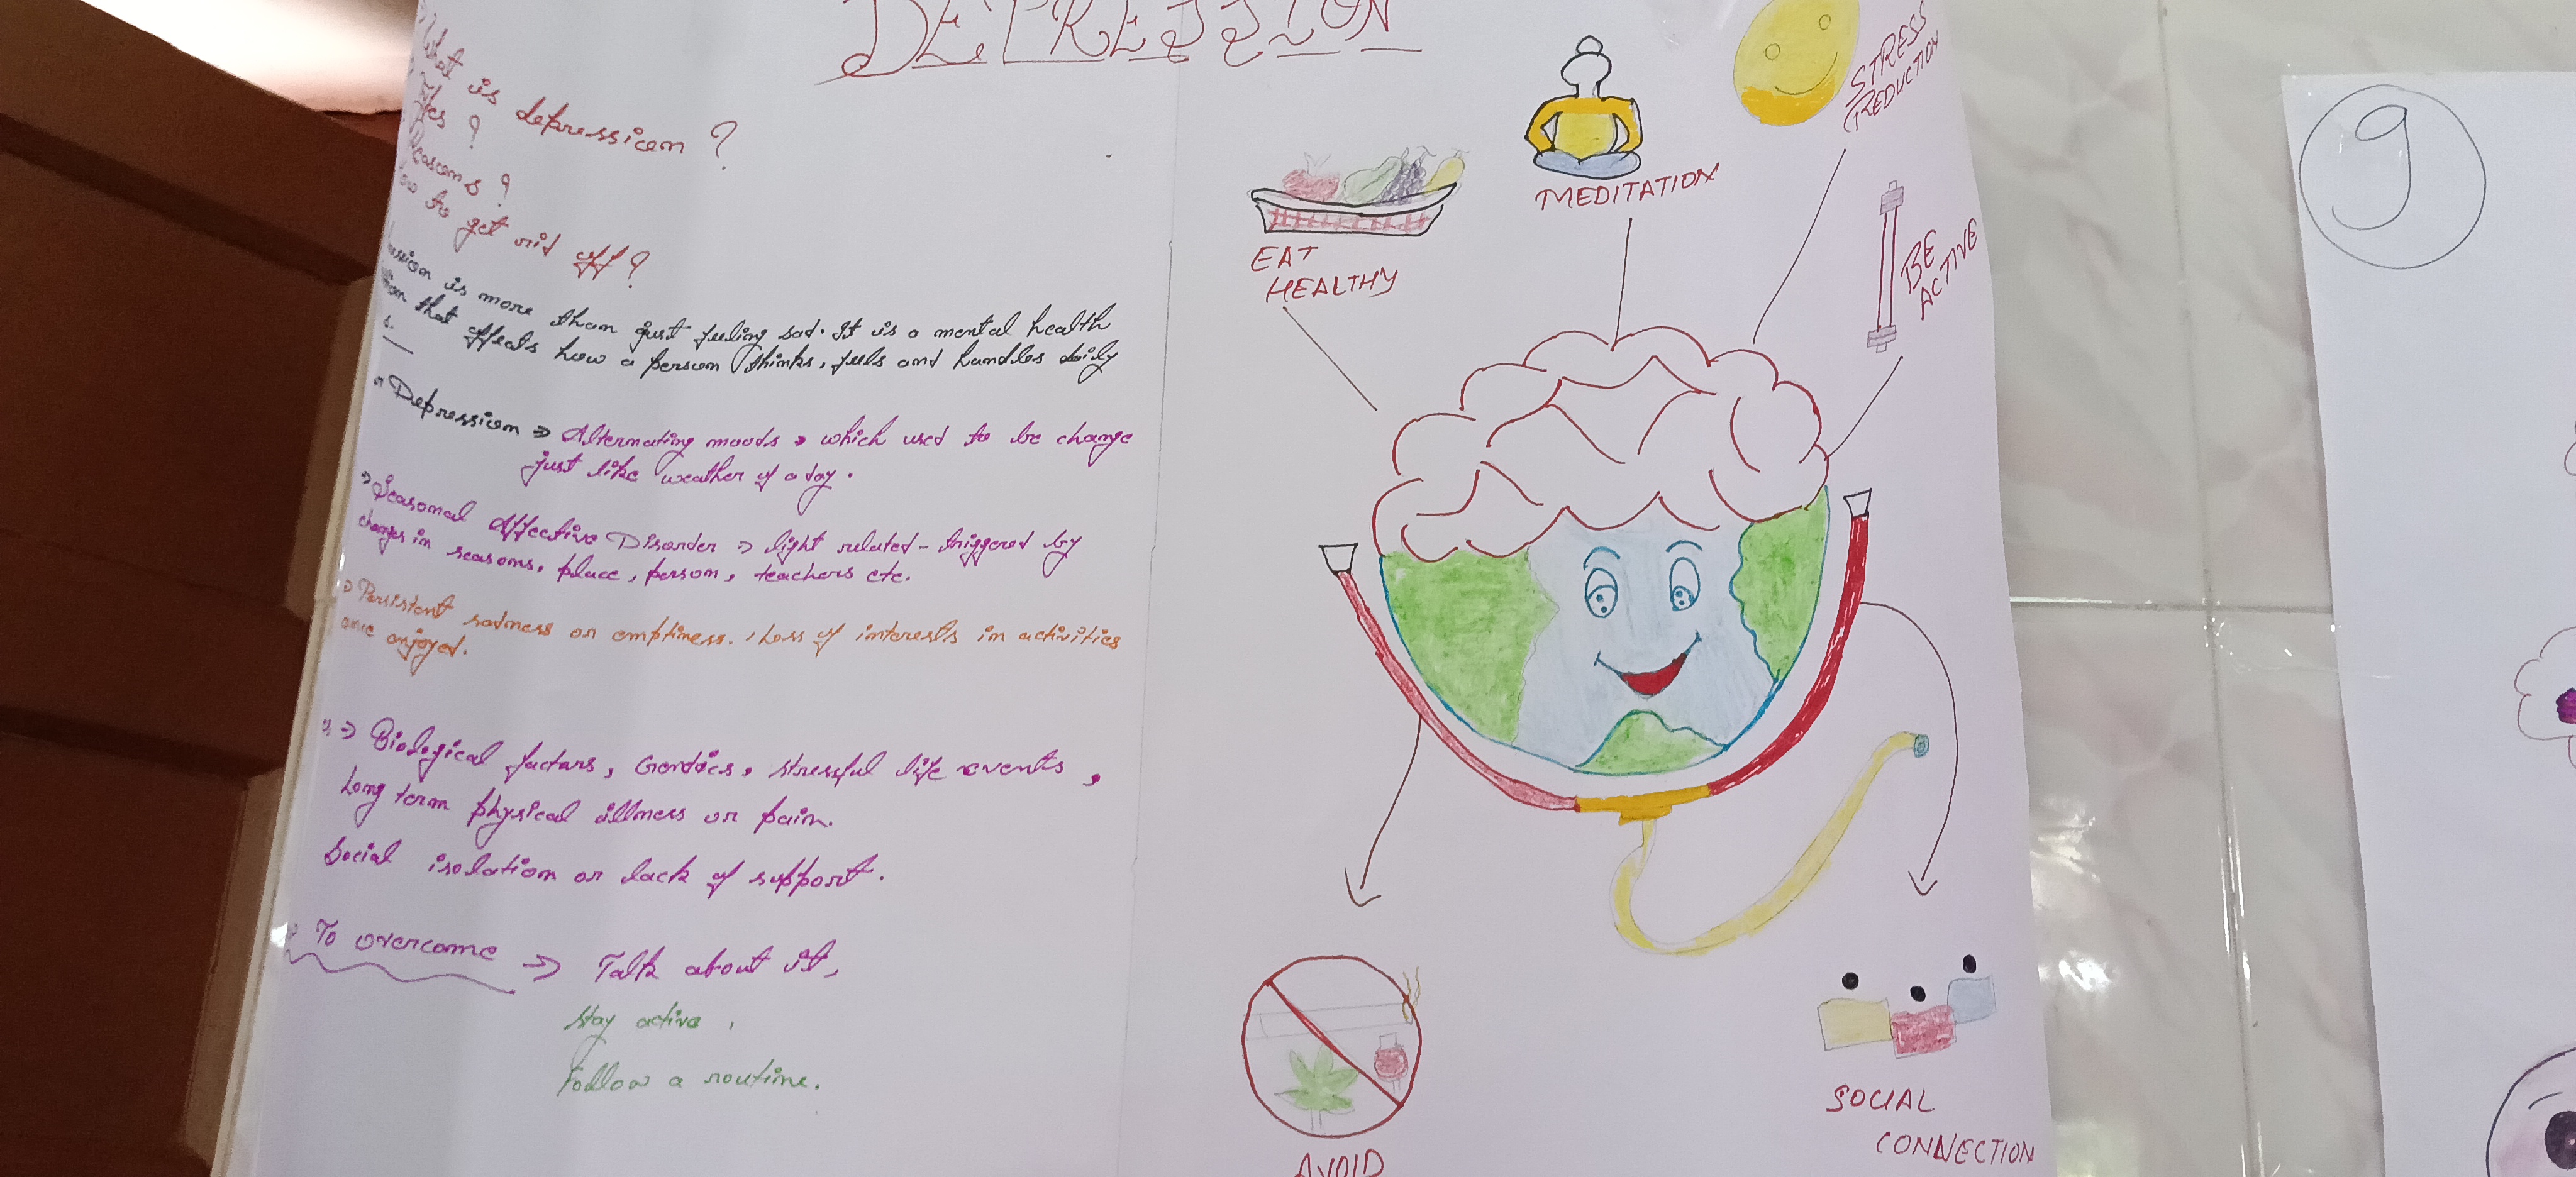 DEPRESSION
What is depression ?
Types ?
Reasons ?
How to get rid off ?
ression is more than just feeling sad. It is a mental health
tion that affects how a person thinks, feels and handles daily
s.
Depression ⇒ Alternating moods, which used to be change
just like weather of a day.
⇒ Seasonal Affective Disorder ⇒ light related - triggered by
changes in seasons, place, person, teachers etc.
⇒ Persistent sadness or emptiness. , Loss of interests in activities
once enjoyed.
s ⇒ Biological factors, Gentics, stressful life events,
Long term physical illness or pain.
Social isolation or lack of support.
To overcome ⇒ Talk about it,
Stay active,
Follow a routine.
EAT
HEALTHY
MEDITATION
STRESS
REDUCTION
BE
ACTIVE
AVOID
SOCIAL
CONNECTION
9